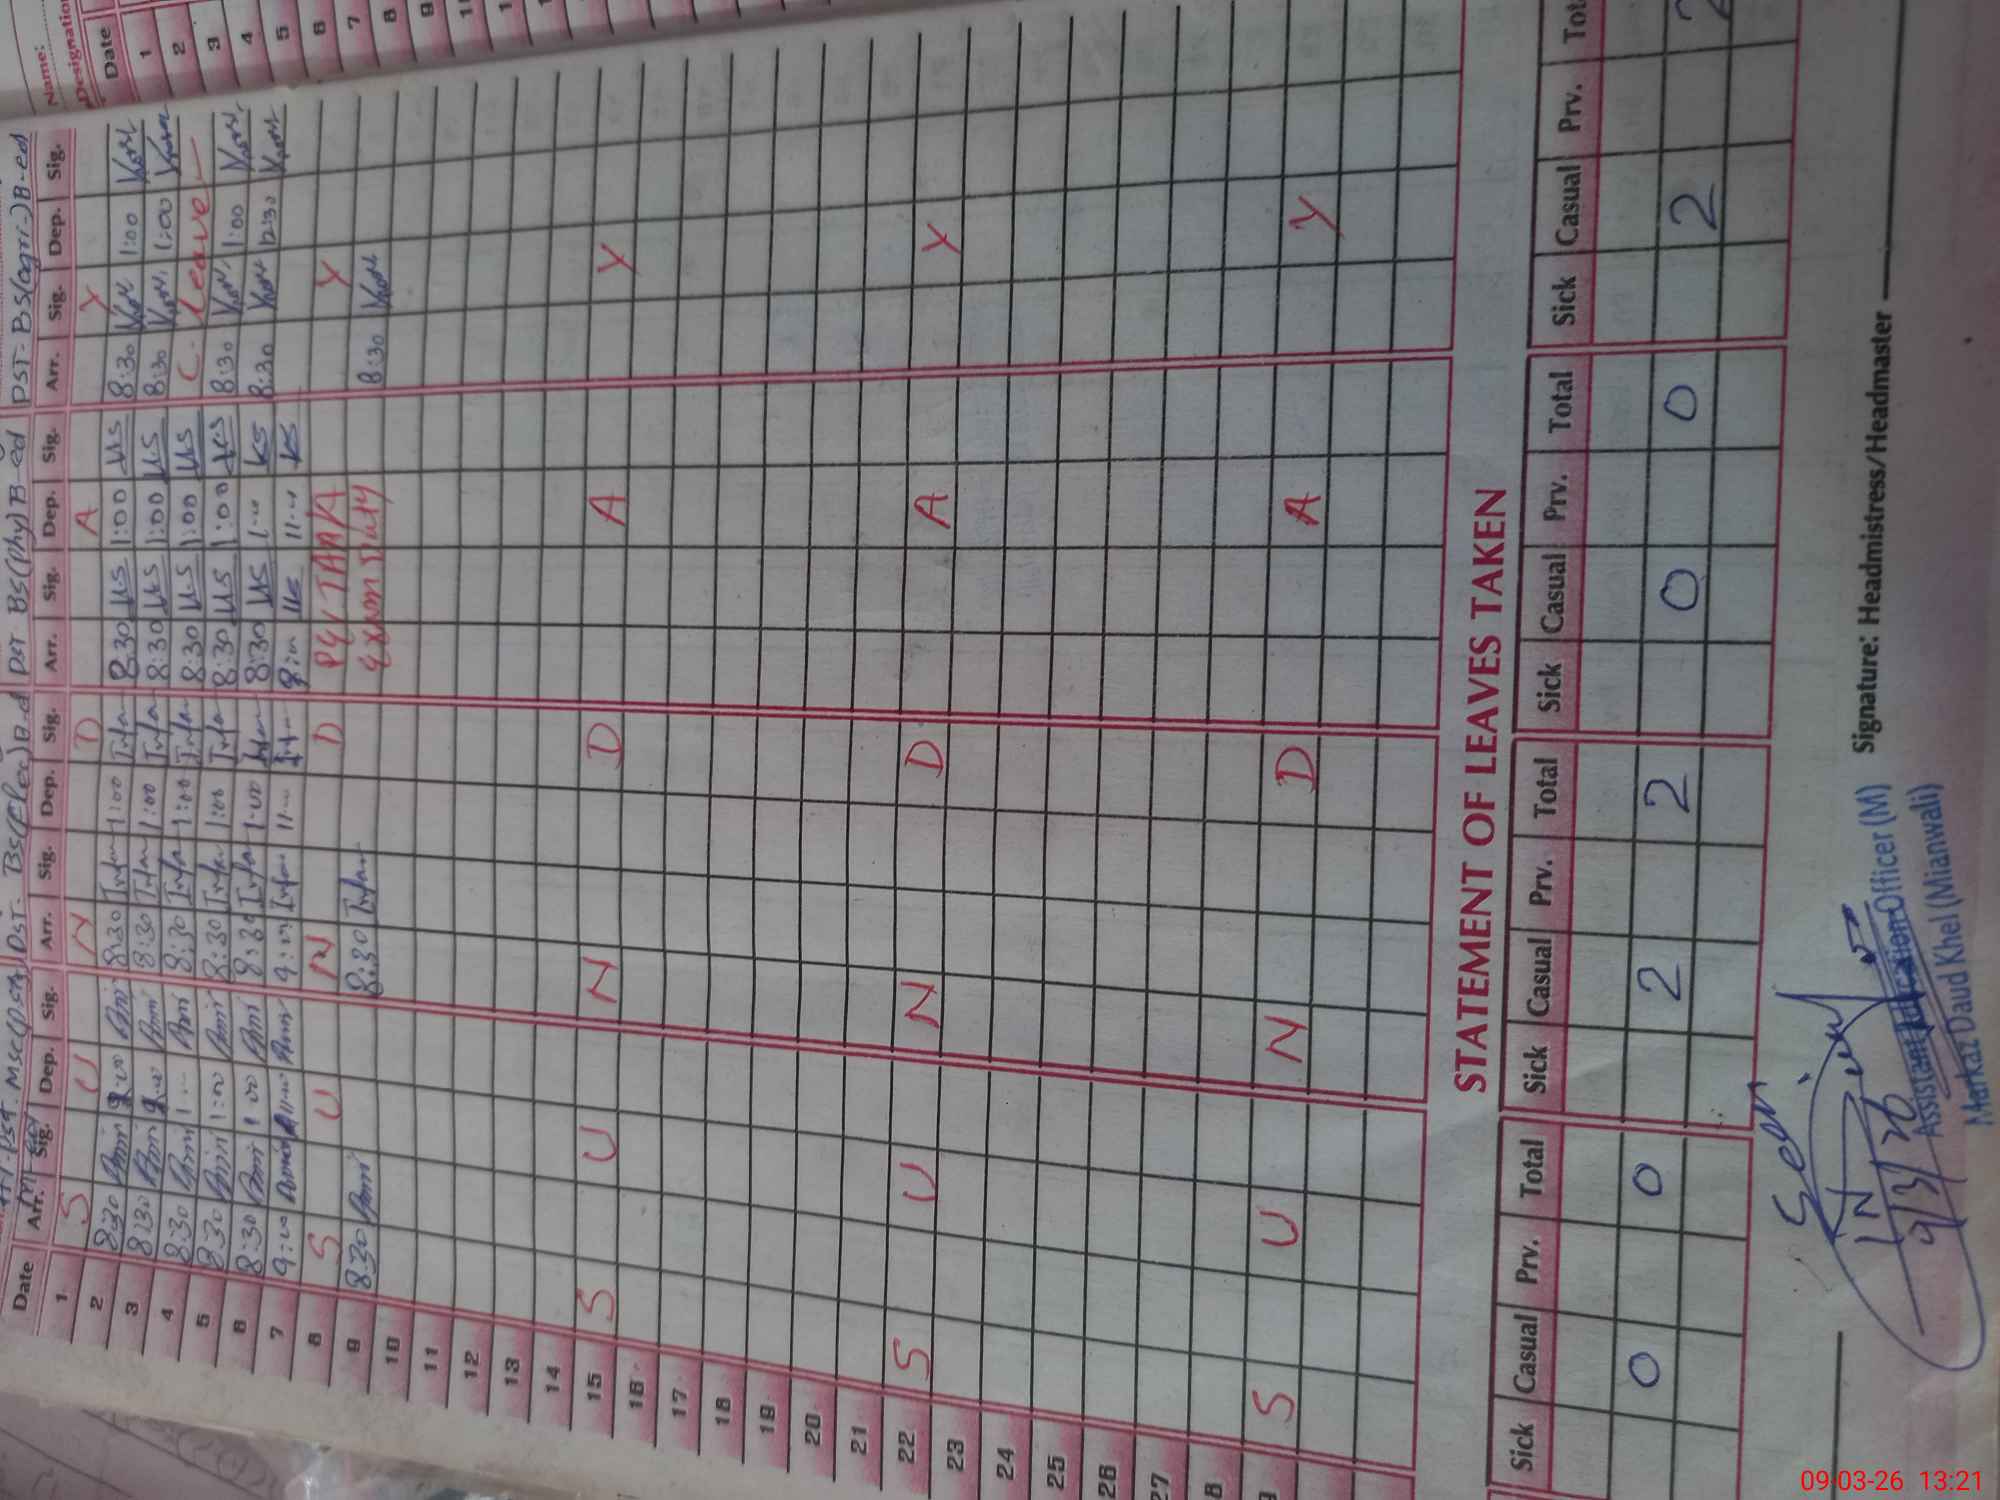 Name:
Designation
Date
1
2
3
4
5
6
7
8
9
PST. MSc DST. BSc(Elec)B.d PST BS(Phy)B-ed PST-BS(agri-)B-ed
Date Arr. Sig. Dep. Sig. Arr. Sig. Dep. Sig. Arr. Sig. Dep. Sig. Arr. Sig. Dep. Sig.
1 S U N D A Y
2 8:30 Amir 9:00 Amir 8:30 Irfan 1:00 Irfan 8:30 KS 1:00 KS 8:30 1:00
3 8:30 Amir 9:00 Amir 8:30 Irfan 1:00 Irfan 8:30 KS 1:00 KS 8:30 1:00
4 8:30 Amir 1:00 Amir 8:30 Irfan 1:00 Irfan 8:30 KS 1:00 KS C. leave
5 8:30 Amir 1:00 Amir 8:30 Irfan 1:00 Irfan 8:30 KS 1:00 KS 8:30 1:00
6 8:30 Amir 1:00 Amir 8:30 Irfan 1:00 Irfan 8:30 KS 1:00 KS 8:30 12:30
7 9:00 Amir 11:00 Amir 9:00 Irfan 11:00 Irfan 9:00 KS 11:00 KS
8 S U N D A Y
9 8:30 Amir 8:30 Irfan Exam Duty 8:30
10
11
12
13
14
15 S U N D A Y
16
17
18
19
20
21
22 S U N D A Y
23
24
25
26
27
8
9 S U N D A Y
STATEMENT OF LEAVES TAKEN
Sick Casual Prv. Total Sick Casual Prv. Total Sick Casual Prv. Total Sick Casual Prv. Tot
0 0 2 2 0 0 2 2
Signature: Headmistress/Headmaster
Seen
9/3/26
Assistant Education Officer (M)
Markaz Daud Khel (Mianwali)
09-03-26 13:21